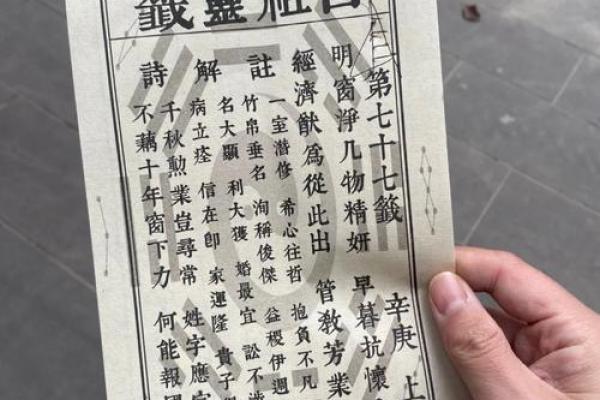 祖靈籤
第七十七籤 辛庚 上
明窗淨几物精妍 早暮抗懷
經濟猷爲從此出 管教芳業
註
一室潛修 希心往哲 抱負不凡
竹帛垂名 洵稱俊傑 益稷伊週
解
名大顯 利大獲 婚最宜 訟不
病立痊 信在即 家運隆 貴子
詩
千秋勲業豈尋常 姓字應
不藉十年窗下力 何能報國